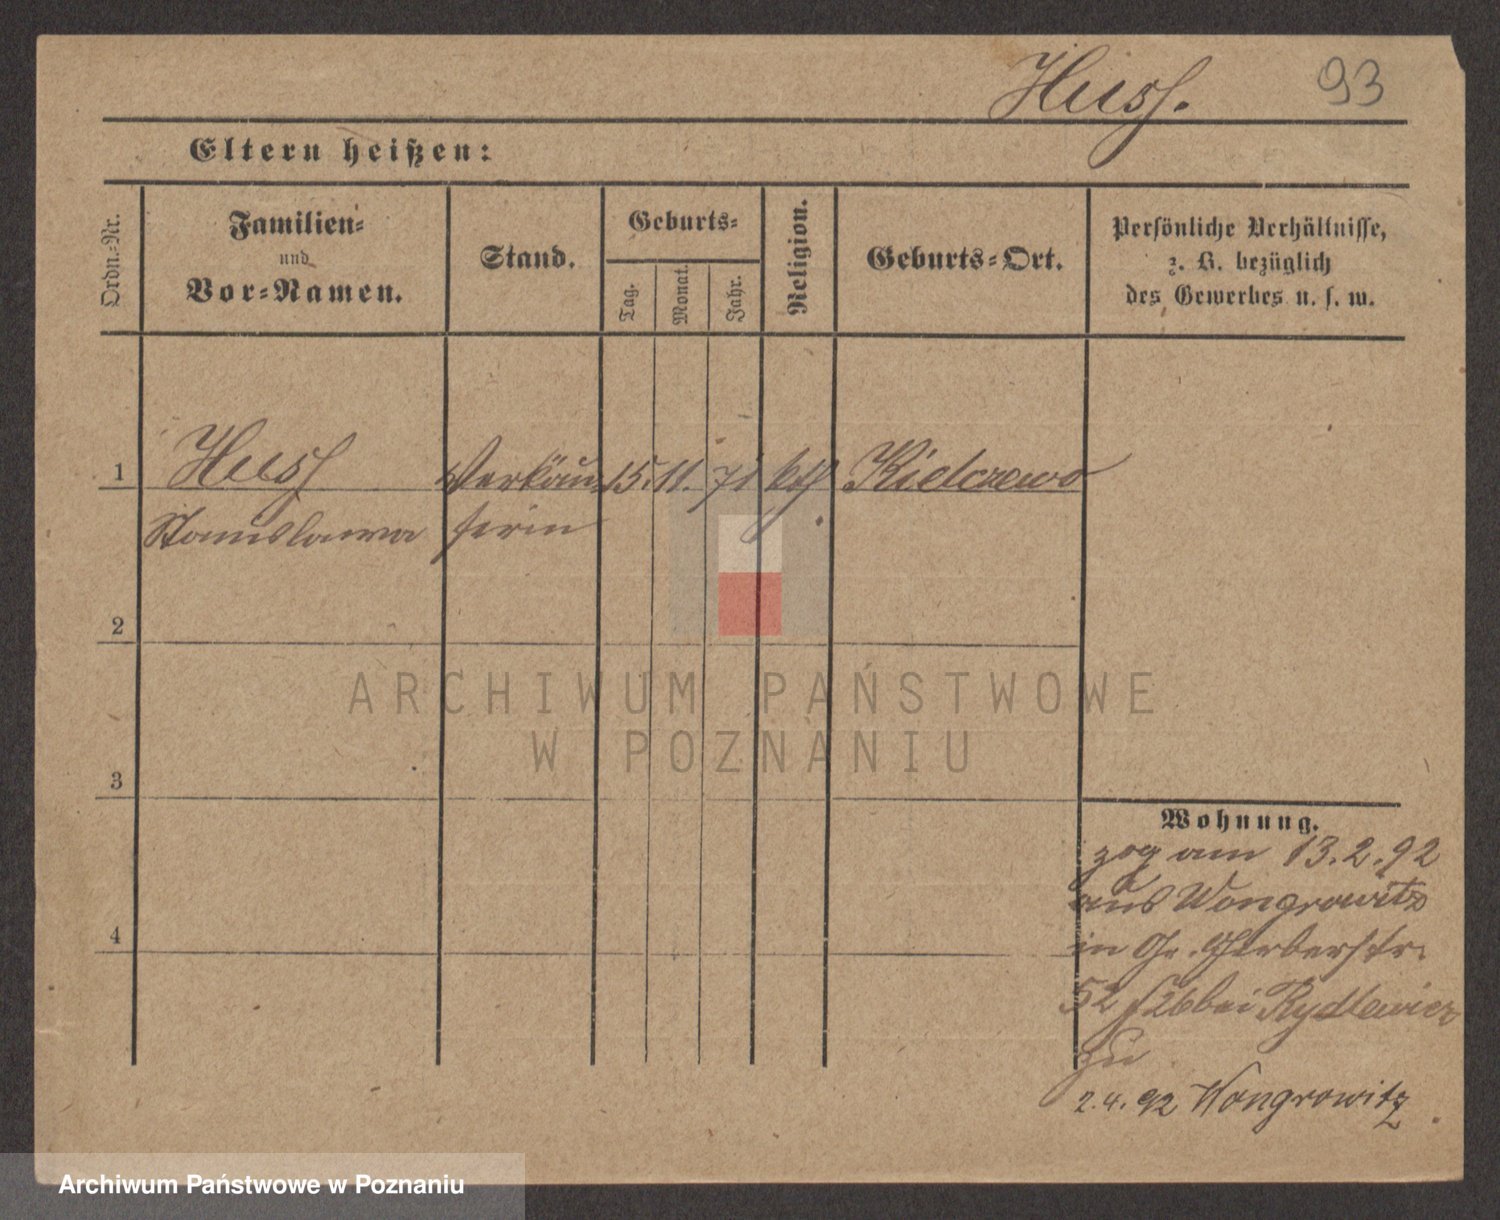 Husf. 93
Eltern heißen:
Ordn.-Nr.
Familien-
und
Vor-Namen.
Stand.
Geburts-
Tag.
Monat.
Jahr.
Religion.
Geburts-Ort.
Persönliche Verhältnisse,
z. B. bezüglich
des Gewerbes u. s. w.
1 Husf Verkäu- 15. 11. 71 kth. Kielczewo
Stanislawa ferin
2
3
4
Wohnung.
zog am 13.2.92
aus Wongrowitz
in Gr. Gerberstr.
52 bei Rydlewicz
zu
2.4.92 Wongrowitz
ARCHIWUM PAŃSTWOWE
W POZNANIU
Archiwum Państwowe w Poznaniu